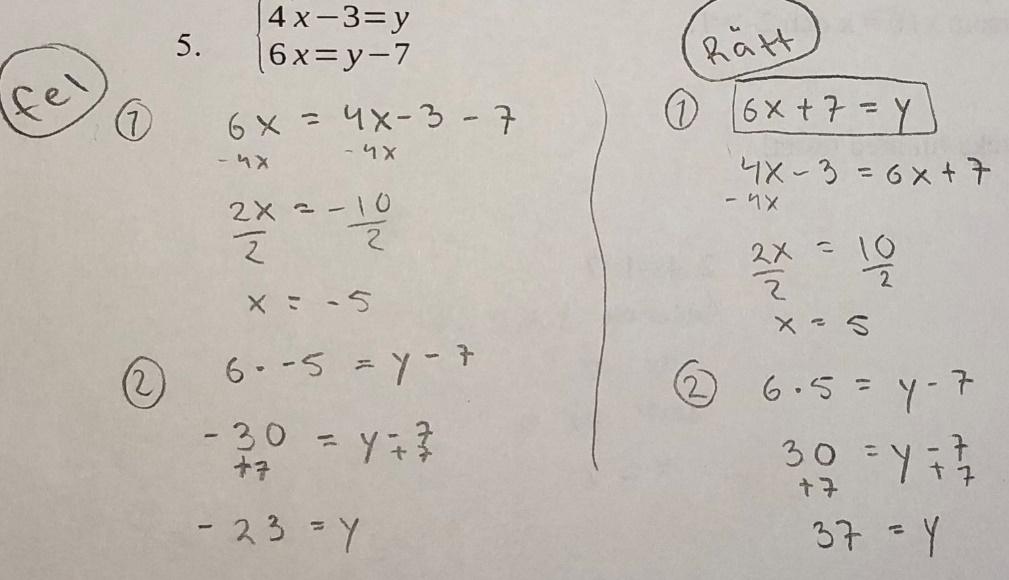 5. 4x−3=y
6x=y−7
fel
① 6x = 4x - 3 - 7
-4x -4x
2x/2 = -10/2
x = -5
② 6 · -5 = y - 7
-30 = y - 7
+7 +7
-23 = y
Rätt
① 6x + 7 = y
4x - 3 = 6x + 7
-4x
2x/2 = 10/2
x = 5
② 6 · 5 = y - 7
30 = y - 7
+7 +7
37 = y